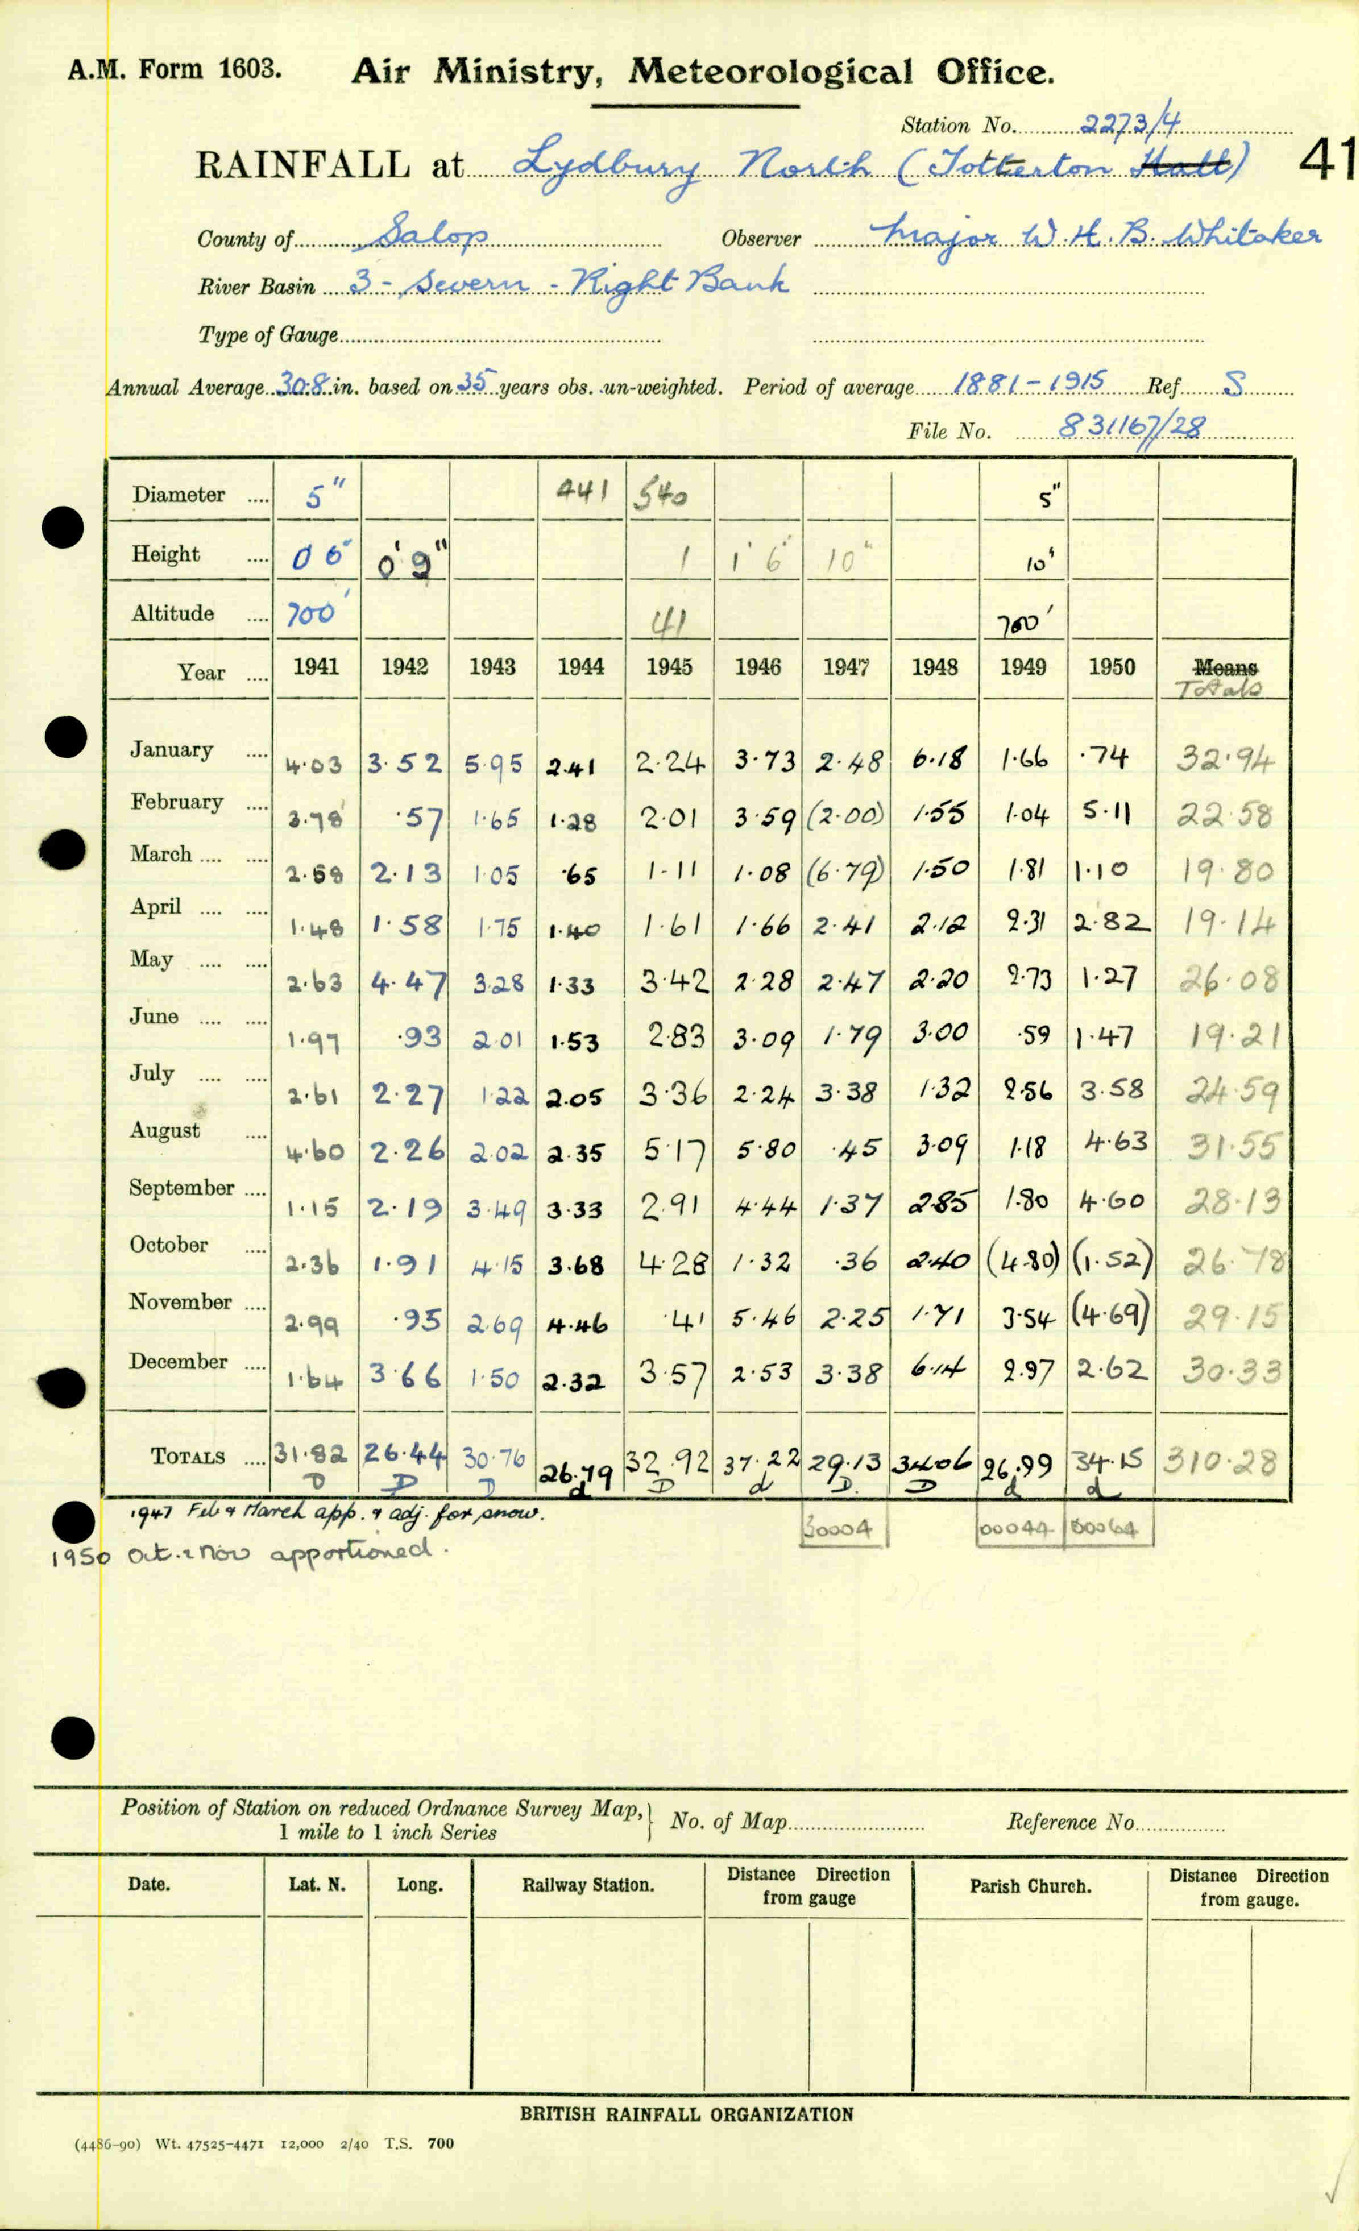 A.M. Form 1603. Air Ministry, Meteorological Office.
Station No. 2273/4
RAINFALL at Lydbury North (Totterton Hall) 41
County of Salop Observer Major W.H.B. Whitaker
River Basin 3 - Severn - Right Bank
Type of Gauge
Annual Average 30.8 in. based on 35 years obs. un-weighted. Period of average 1881-1915 Ref S
File No. 831167/28
Diameter .... 5" 441 540 5"
Height .... 0 6" 0' 9" 1 1' 6" 10" 10"
Altitude .... 700' 41 700'
Year .... 1941 1942 1943 1944 1945 1946 1947 1948 1949 1950 Means
Totals
January .... 4.03 3.52 5.95 2.41 2.24 3.73 2.48 6.18 1.66 .74 32.94
February .... 3.78 .57 1.65 1.28 2.01 3.59 (2.00) 1.55 1.04 5.11 22.58
March .... .... 2.58 2.13 1.05 .65 1.11 1.08 (6.79) 1.50 1.81 1.10 19.80
April .... .... 1.48 1.58 1.75 1.40 1.61 1.66 2.41 2.12 2.31 2.82 19.14
May .... .... 2.63 4.47 3.28 1.33 3.42 2.28 2.47 2.20 2.73 1.27 26.08
June .... .... 1.97 .93 2.01 1.53 2.83 3.09 1.79 3.00 .59 1.47 19.21
July .... .... 2.61 2.27 1.22 2.05 3.36 2.24 3.38 1.32 2.56 3.58 24.59
August .... 4.60 2.26 2.02 2.35 5.17 5.80 .45 3.09 1.18 4.63 31.55
September .... 1.15 2.19 3.49 3.33 2.91 4.44 1.37 2.85 1.80 4.60 28.13
October .... 2.36 1.91 4.15 3.68 4.28 1.32 .36 2.40 (4.80) (1.52) 26.78
November .... 2.99 .95 2.69 4.46 .41 5.46 2.25 1.71 3.54 (4.69) 29.15
December .... 1.64 3.66 1.50 2.32 3.57 2.53 3.38 6.14 2.97 2.62 30.33
TOTALS .... 31.82 26.44 30.76 26.79 32.92 37.22 29.13 34.06 26.99 34.15 310.28
D D D d D d D D d d
1947 Feb & March app. & adj. for snow. 30004 00044 00064
1950 Oct. & Nov apportioned.
Position of Station on reduced Ordnance Survey Map, No. of Map Reference No.
1 mile to 1 inch Series
Date. Lat. N. Long. Railway Station. Distance Direction from gauge Parish Church. Distance Direction from gauge.
BRITISH RAINFALL ORGANIZATION
(4486-90) Wt. 47525-4471 12,000 2/40 T.S. 700